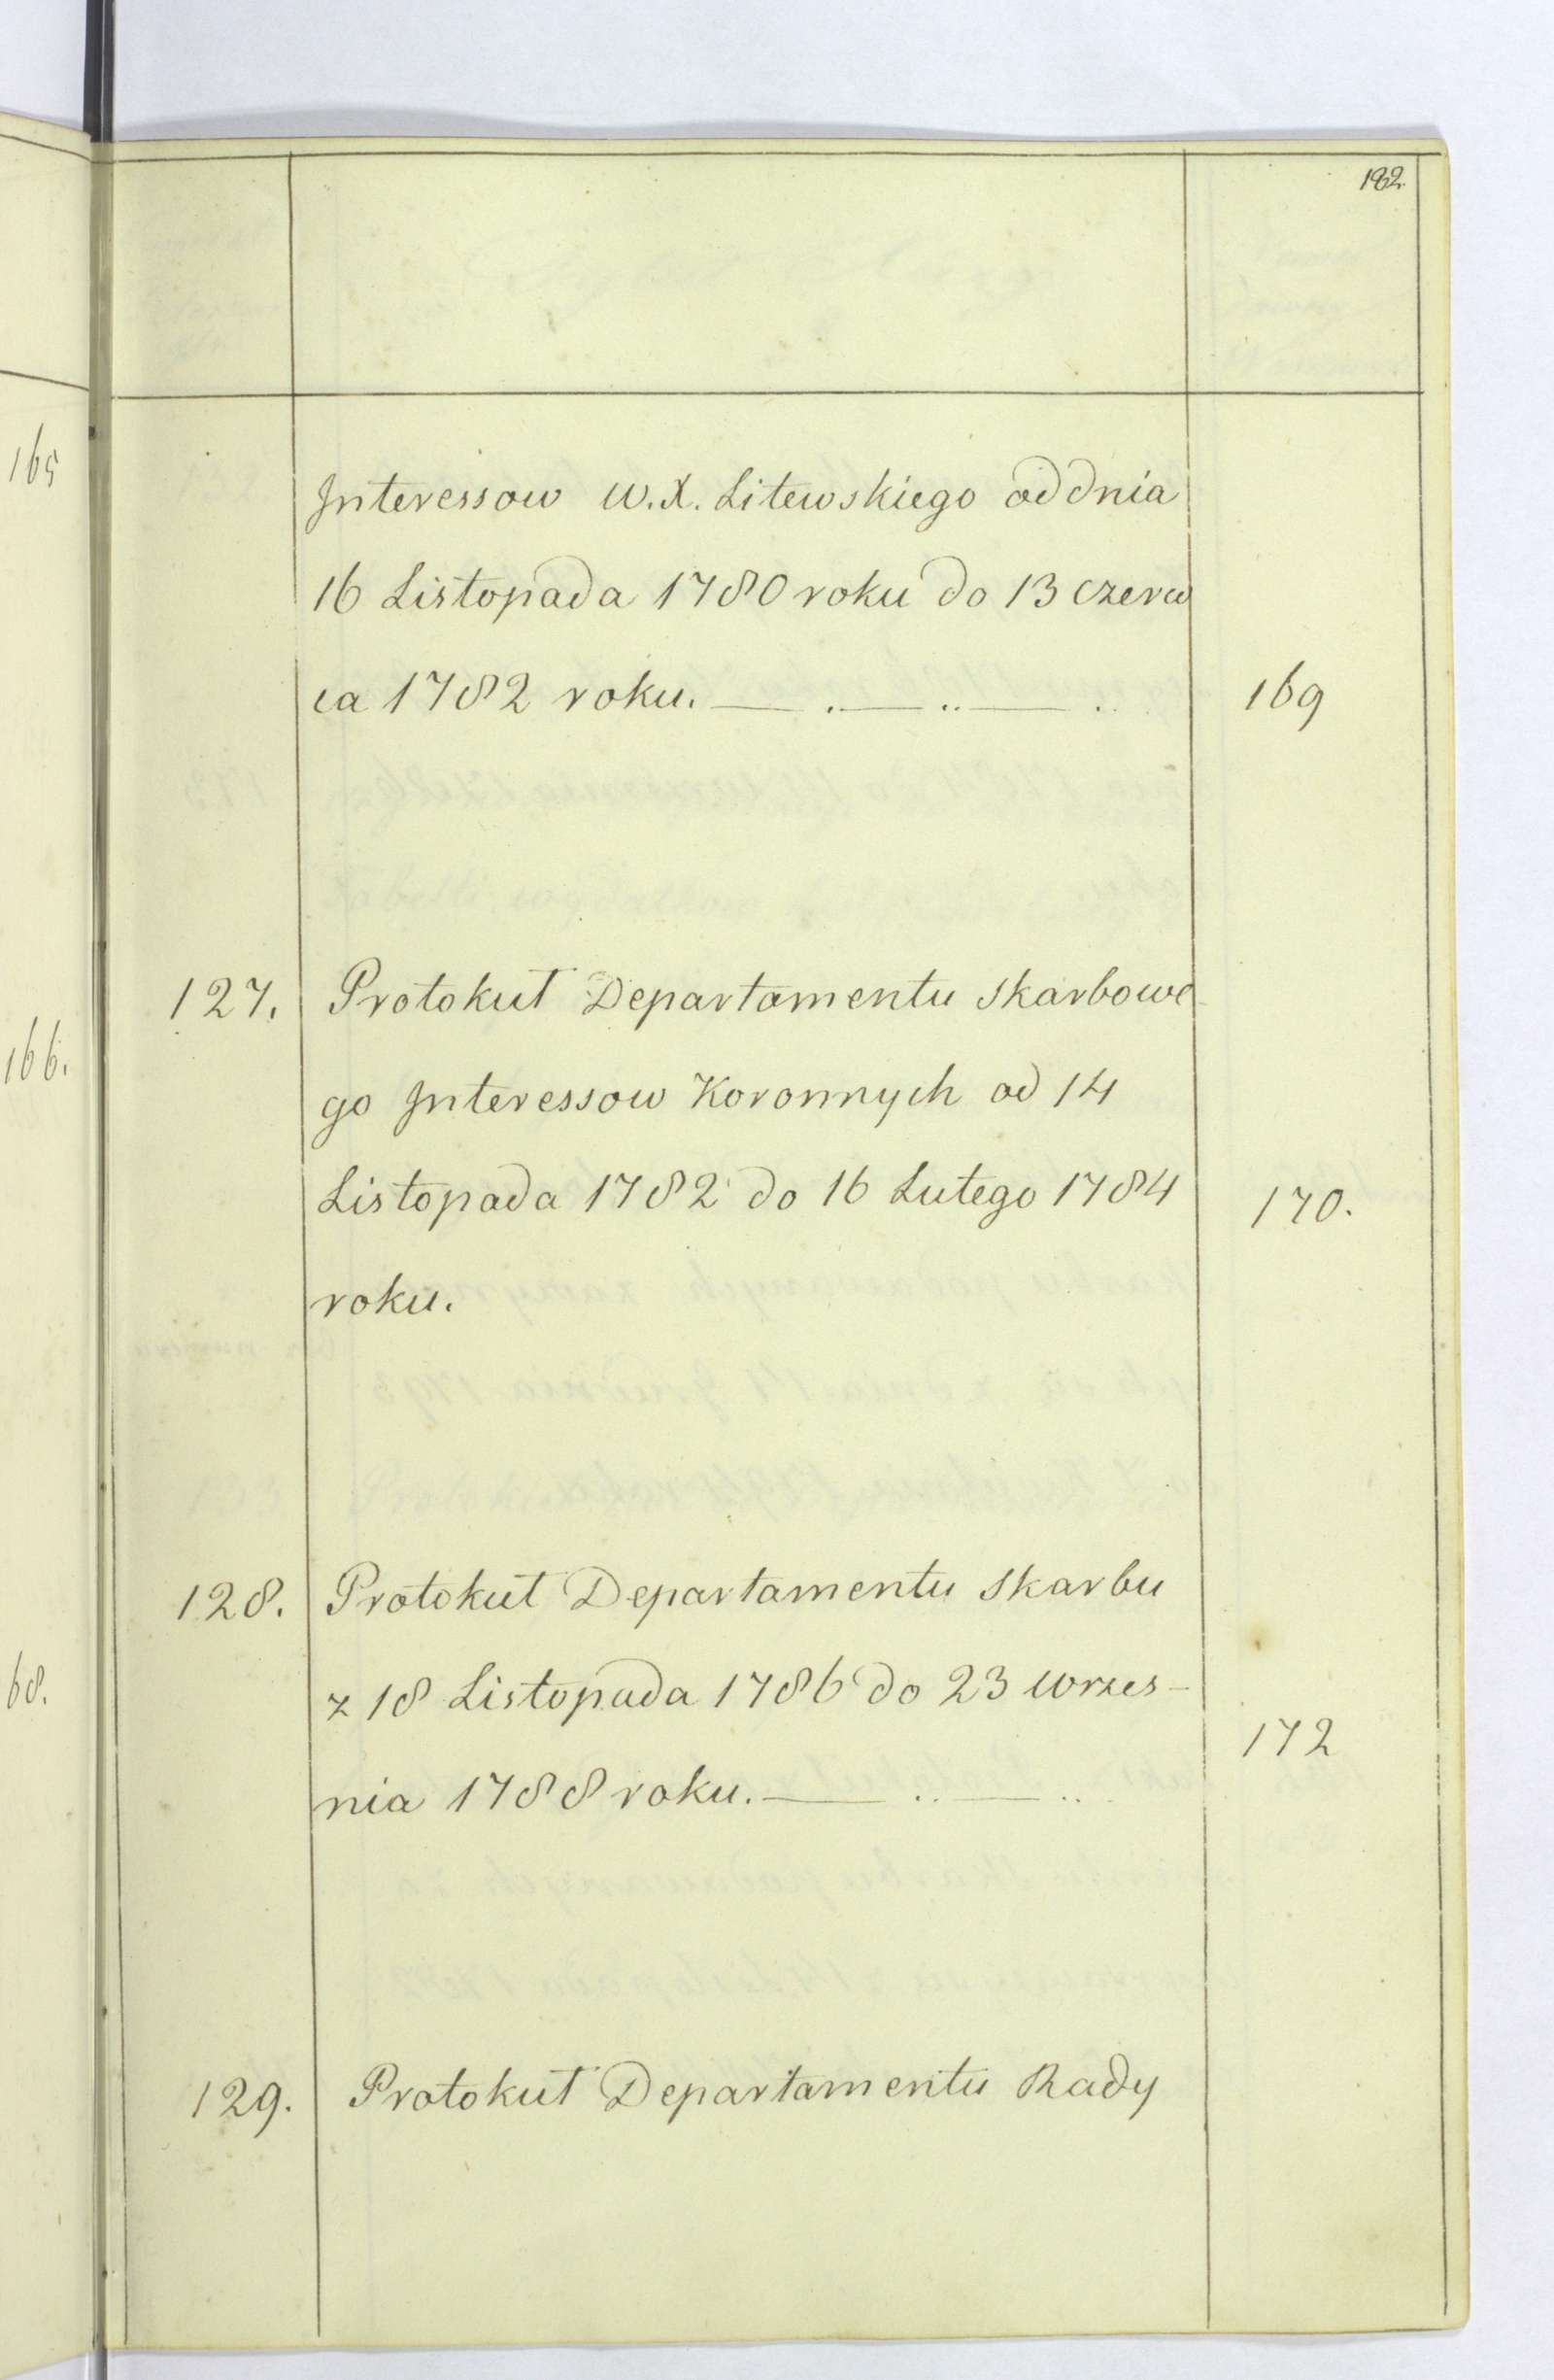 182.
165
Interessow W.X. Litewskiego od dnia
16 Listopada 1780 roku do 13 czerw
ca 1782 roku. — . — .. — .. 169
127. Protokuł Departamentu Skarbowe
166.
go Interessow Koronnych od 14
Listopada 1782 do 16 Lutego 1784 170.
roku.
128. Protokuł Departamentu Skarbu
68.
z 18 Listopada 1786 do 23 Wrzes- 172
nia 1788 roku. — .. — ..
129. Protokuł Departamentu Rady